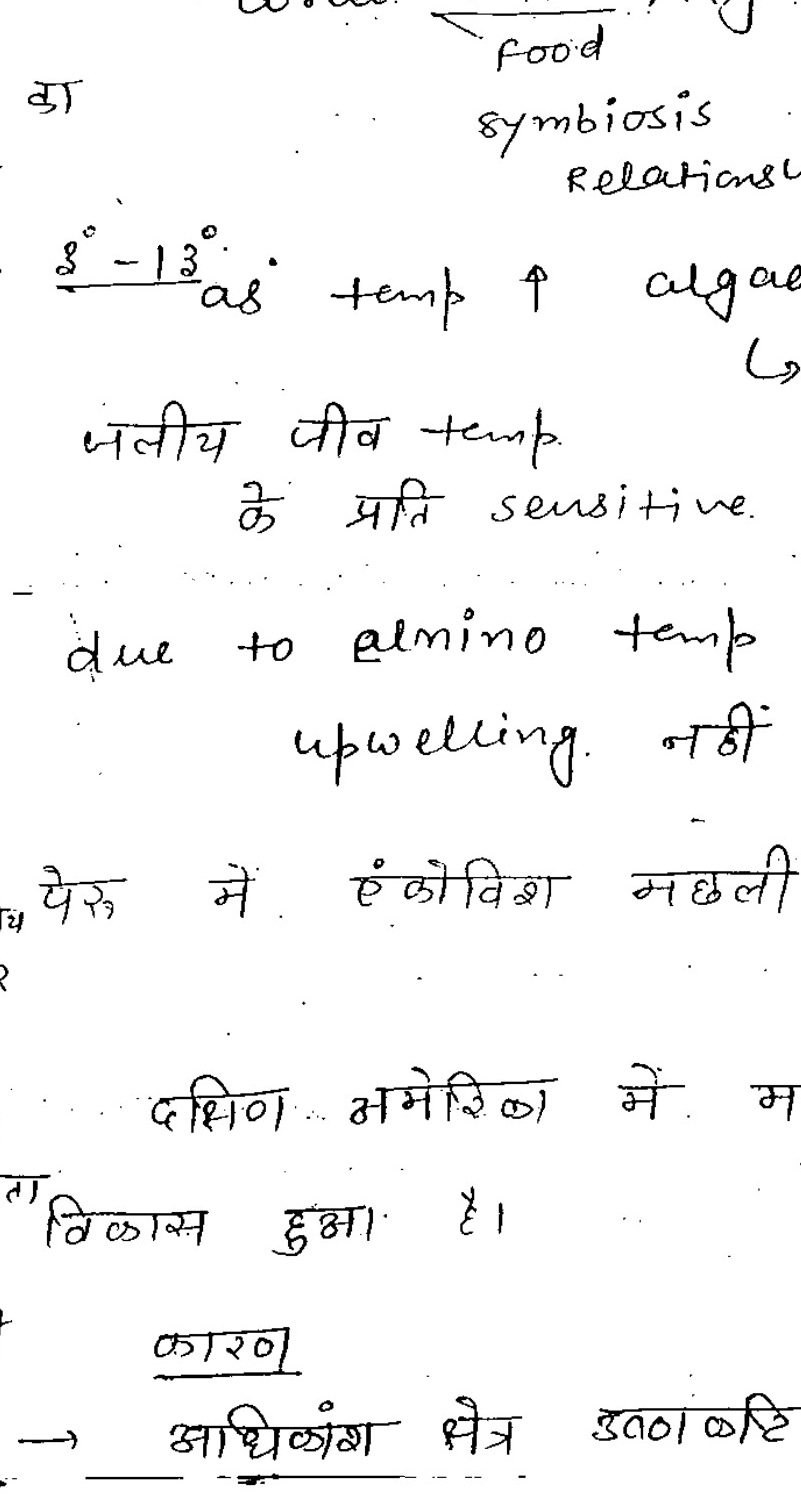 food
का
symbiosis
Relations
3° - 13°
as temp ↑ algae
↳
जलीय जीव temp
के प्रति sensitive.
due to elnino temp
upwelling. नहीं
पेरू में एंकोविश मछली
दक्षिण अमेरिका में म
विकास हुआ है।
कारण
→ अधिकांश क्षेत्र उष्णकटि